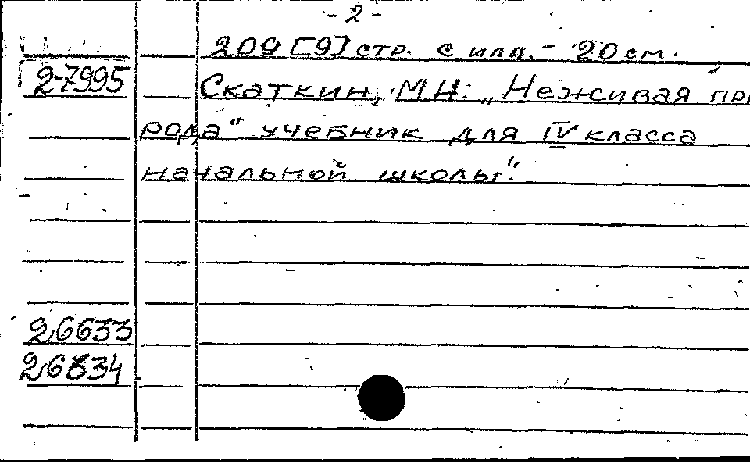 - 2 -
209 [9] стр. с илл. - 20 см.
2-7995 Скаткин, М.Н. „Неживая при
рода" учебник для IV класса
начальной школы".
26633
26634